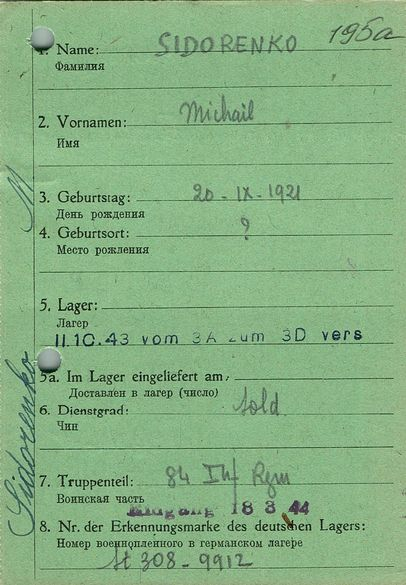 195a
1. Name: SIDORENKO
Фамилия
2. Vornamen: Michail
Имя
3. Geburtstag: 20-IX-1921
День рождения
4. Geburtsort: ?
Место рожления
5. Lager:
Лагер
11.10.43 vom 3A zum 3D vers
5a. Im Lager eingeliefert am:
Доставлен в лагер (число)
6. Dienstgrad: Sold
Чин
7. Truppenteil: 84 Inf Rgm
Воинская часть
Eingang 18 3 44
8. Nr. der Erkennungsmarke des deutschen Lagers:
Номер военнопленного в германском лагере
St 308-9912
Sidorenko M